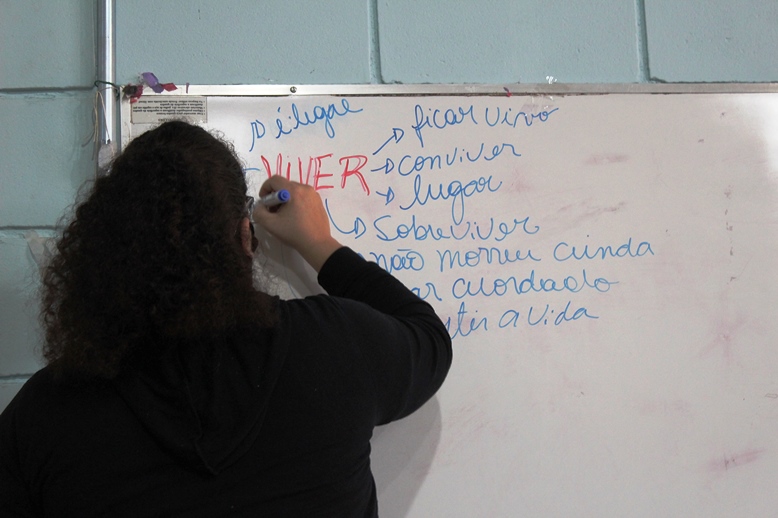 é
ficar vivo
VIVER
conviver
lugar
Sobreviver
não morreu ainda
ar acordado
tir a vida